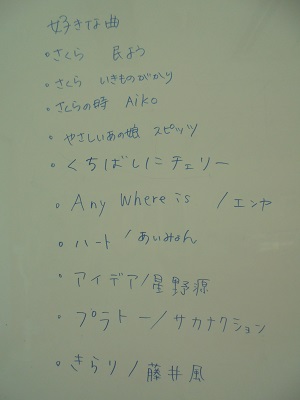 好きな曲
・さくら 民よう
・さくら いきものがかり
・さくらの時 Aiko
・やさしいあの娘 スピッツ
・くちばしにチェリー
・Any Where is /エンヤ
・ハート/あいみょん
・アイデア/星野源
・プラトー/サカナクション
・きらり/藤井風